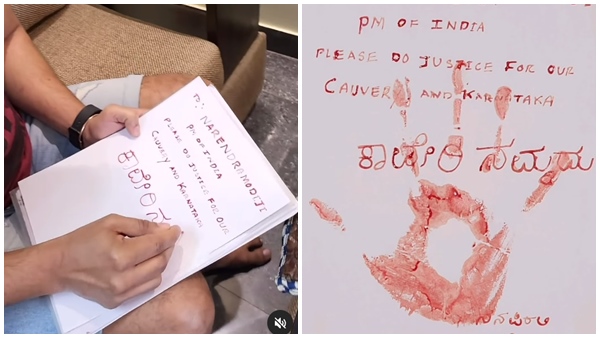 TO: NARENDRAMODIJI
PM OF INDIA
PLEASE DO JUSTICE FOR OUR
CAUVERY AND KARNATAKA
ಕಾವೇರಿ ನ
PM OF INDIA
PLEASE DO JUSTICE FOR OUR
CAUVERY AND KARNATAKA
ಕಾವೇರಿ ನಮ್ಮದು